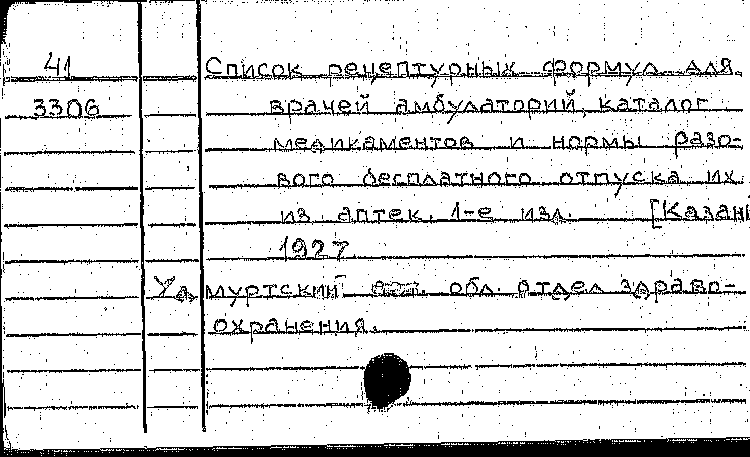 41 Список рецептурных формул для
3306 врачей амбулаторий, каталог
медикаментов и нормы разо-
вого бесплатного отпуска их
из аптек. 1-е изд. [Казань
1927
Удмуртский авт. обл. отдел здраво-
охранения.